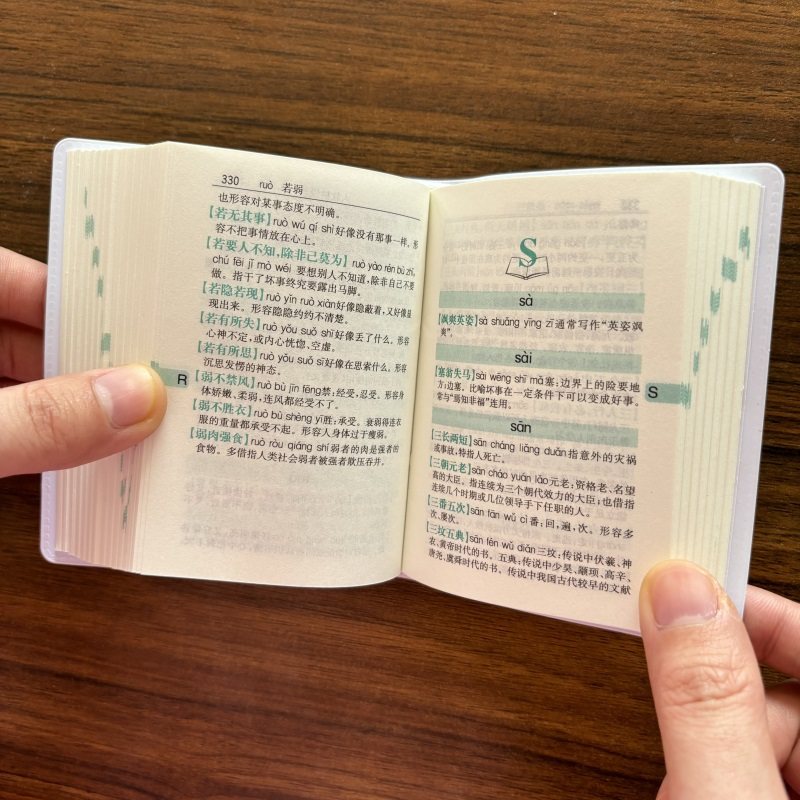 330 ruò 若弱
也形容对某事态度不明确。
【若无其事】ruò wú qí shì好像没有那事一样。形
容不把事情放在心上。
【若要人不知,除非己莫为】ruò yào rén bù zhī,
chú fēi jǐ mò wéi 要想别人不知道,除非自己不要
做。指干了坏事终究要露出马脚。
【若隐若现】ruò yǐn ruò xiàn好像隐蔽着,又好像显
现出来。形容隐隐约约不清楚。
【若有所失】ruò yǒu suǒ shī好像丢了什么。形容
心神不定,或内心恍惚、空虚。
【若有所思】ruò yǒu suǒ sī好像在思索什么。形容
沉思发愣的神态。
【弱不禁风】ruò bù jīn fēng禁:经受,忍受。形容身
体娇嫩、柔弱,连风都经受不了。
【弱不胜衣】ruò bù shèng yī胜:承受。衰弱得连衣
服的重量都承受不起。形容人身体过于瘦弱。
【弱肉强食】ruò ròu qiáng shí弱者的肉是强者的
食物。多借指人类社会弱者被强者欺压吞并。
R
S
sà
【飒爽英姿】sà shuǎng yīng zī通常写作“英姿飒
爽”。
sài
【塞翁失马】sài wēng shī mǎ塞:边界上的险要地
方;边塞。比喻坏事在一定条件下可以变成好事。
常与“焉知非福”连用。
sān
【三长两短】sān cháng liǎng duǎn指意外的灾祸
或事故,特指人死亡。
【三朝元老】sān cháo yuán lǎo元老:资格老、名望
高的大臣。指连续为三个朝代效力的大臣;也借指
连续几个时期或几位领导手下任职的人。
【三番五次】sān fān wǔ cì番:回,遍,次。形容多
次、屡次。
【三坟五典】sān fén wǔ diǎn三坟:传说中伏羲、神
农、黄帝时代的书。五典:传说中少昊、颛顼、高辛、
唐尧、虞舜时代的书。传说中我国古代较早的文献
S